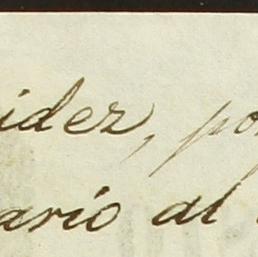 idez, po
ario al